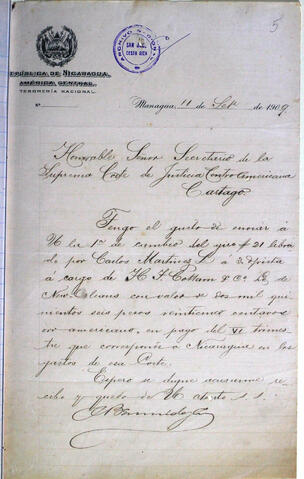 5
ARCHIVO NACIONAL
SAN JOSE
COSTA RICA
REPÚBLICA DE NICARAGUA
AMÉRICA CENTRAL
TESORERÍA NACIONAL
Nº
Managua, 11 de Set. de 1909
Honorable Señor Secretario de la
Suprema Corte de Justicia Centroamericana
Cartago
Tengo el gusto de enviar á
U la 1ª de cambio del giro # 21 libra
do por Carlos Martínez L á 3 d/vista
á cargo de H. T. Cottam & Co Ld, de
New Orleans con valor de dos mil qui
nientos seis pesos veintiunos centavos
oro americano, en pago del VI trimes
tre que corresponde á Nicaragua en los
gastos de esa Corte.
Espero se digne acusarme re
cibo y quedo de U. atento s. s.